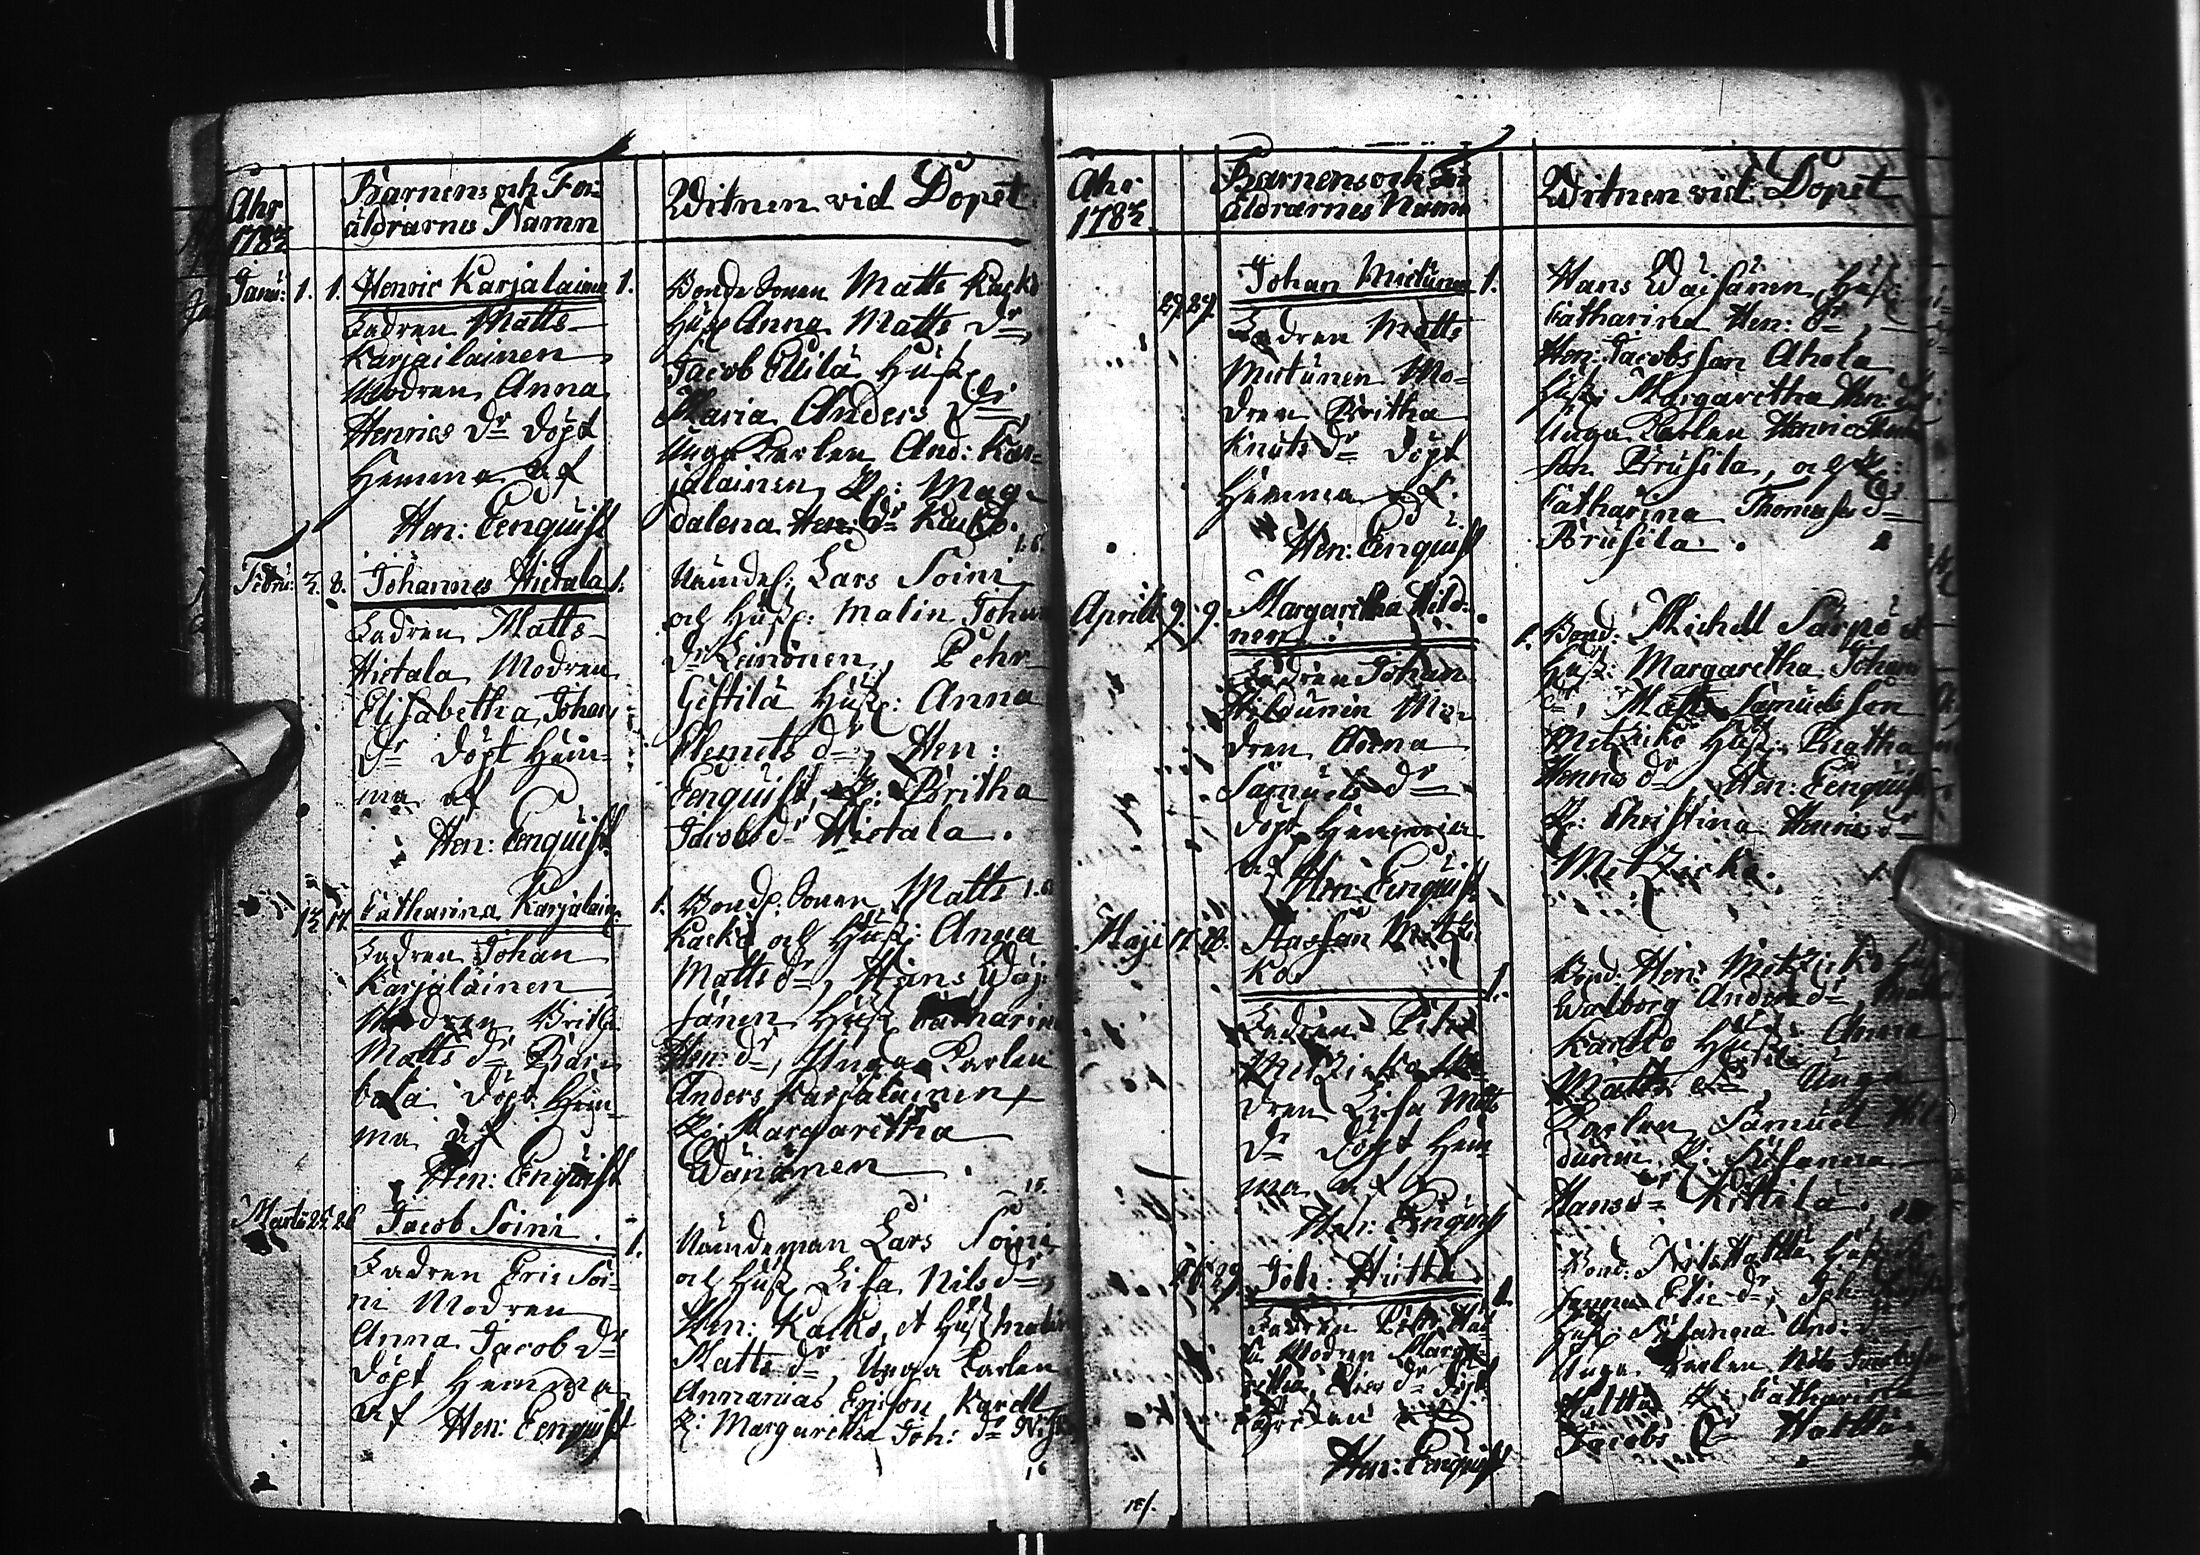 Åhr
1782
Barnens och För
äldrarnes Namn
Witnen vid Dopet
Janu: 1. 1. Henric Karjalainen 1.
Fadren Matts
Karjailainen
Modren Anna
Henrics dr döpt
Hemma af
Hen: Eenquist
Bonde Sonen Matts Kacko
Hust Anna Matts dr,
Jacob Ellilä Hust:
Maria Anders dr,
Unga Karlen And: Kar=
jalainen, P: Mag=
dalena Hen: dr Kacko.
Febru: 2. 8. Johannes Hietala 1.
Fadren Matts
Hietala Modren
Elisabetha Johans
dr döpt Hem=
ma af
Hen: Eenquist
Nämdem: Lars Soini
och Hust: Malin Johans
dr Leinonen, Pehr
Hust: Anna
Klemets dr, Hen:
Eenquist, P: Britha
Jacobs dr Hietala.
12 17. Catharina Karjalain: 1.
Fadren Johan
Karjalainen
Modren Britha
Matts dr
döpt Hem=
ma af
Hen: Enquist
Bonde Sonen Matts
Kacko och Hust: Anna
Matts dr, Hans Wäi
sänen Hust Catharina
Hen: dr, Unga Karlen
Anders Karjalainen
P: Margaretha
Wänänen.
Martii 25 26 Jacob Soini. 1.
Fadren Eric Soi=
ni Modren
Anna Jacobs dr
döpt Hemma
af Hen: Eenquist
Nämdeman Lars Soini
och Hust Lisa Nils dr,
Hen: Kacko, et Hust Malin
Matts dr, Unga Karlen
Annanias Ericson Karell
P: Margaretha Joh: dr
16
Åhr
1782.
Barnens och För
äldrarnes Namn
Witnen vid Dopet
27. 27. Johan Mietunen 1.
Fadren Matts
Mietunen Mo=
dren Britha
Knuts dr döpt
Hemma af
Hen: Enquist
Hans Wäisänen Hust:
Catharina Hen: dr,
Hen: Jacobsson Ahola
Hust: Margaretha Hen: dr
Unga Karlen Henric Thomas
son Brusila, och P:
Catharina Thomas dr
Brusila.
Aprill 9. 9. Margaretha Hildu
nen 1.
Fadren Johan
Hildunen Mo=
dren Anna
Samuels dr
döpt Hemma
af Hen: Eenquist
Bond: Michell Särpö et
Hust: Margaretha Johans
dr, Matts Samuelsson
Metzicko Hust: Beatha
Henrics dr, Hen: Eenquist
P: Christina Henrics dr
Metzicko.
Maji 17. 18. Hassan Metzi
ko 1.
Fadren Petr
Metzicko Mo=
dren Lisa Matts
dr döpt Hem
ma af
Hen: Enquist
Bond: Hen: Metzicko Hust
Walborg Anders dr,
Hust: Anna
Matts dr, Unga
Karlen Samuel Hil
dunen P: Susanna
Hans dr Kittilä.
Joh: Hatta 1.
Fadren Petr Hat
ta Modren Marga
retha Elies dr döpt
Hen: Eenquist
Bond: Nils Hatta Hust:
Elie dr, Joh:
Hust: Susanna And:
Unga Karlen Nils Jacobsson
Hatta P: Catharina
Jacobs dr Hatta.